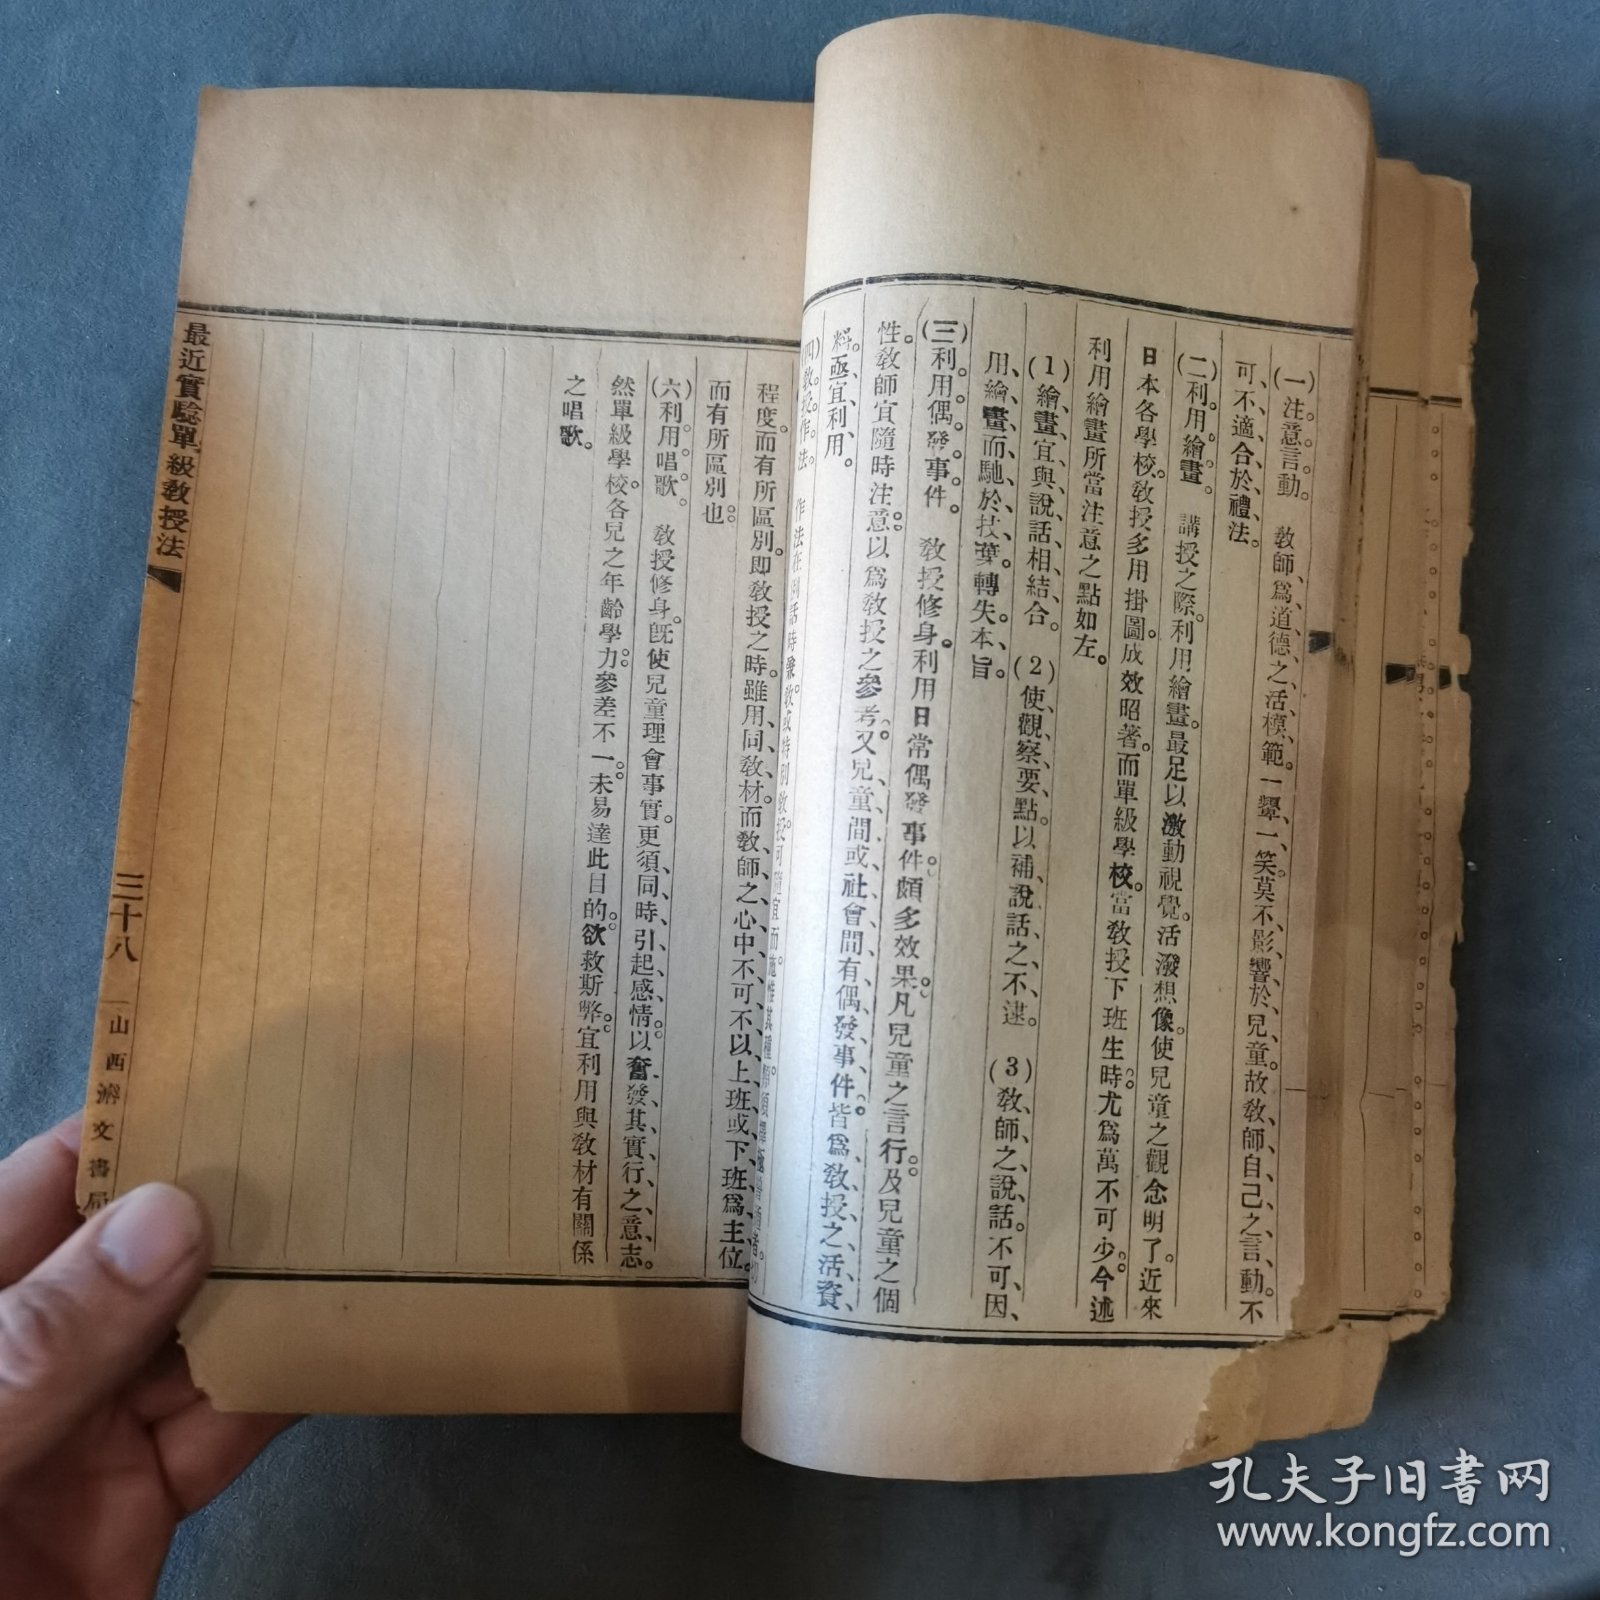 (一)注意言動。 敎師、爲、道、德、之、活、模、範。一顰、一笑、莫不影響於、兒、童。故敎、師、自、己、之、言、動。不
可、不、適、合、於、禮、法。
(二)利用繪畫。 講授之際。利用繪畫。最足以激動視覺。活潑想像。使兒童之觀念明了。近來
日本各學校。敎授多用掛圖。成效昭著。而單級學校。當敎授下班生時。尤爲萬不可少。今述
利用繪畫所當注意之點如左。
(1)繪、畫、宜、與、說、話、相、結、合。 (2)使、觀、察、要、點。以補、說、話、之、不、逮。 (3)敎、師、之、說、話。不可、因、
用、繪、畫、而、馳、於、枝、葉。轉、失、本、旨。
(三)利用偶發事件。 敎授修身。利用日常偶發事件。頗多效果。凡兒童之言行。及兒童之個
性。敎師宜隨時注意。以爲敎授之參考。又兒、童、間、或、社、會、間、有、偶、發、事、件。皆爲、敎、授、之、活、資、
料。亟、宜、利、用。
(四)敎授作法。 作法在例話時兼敎或特別敎授。可隨宜而施。惟其種類
程度。而有所區別。即敎授之時。雖用、同、敎、材。而敎、師、之、心、中、不、可、不、以、上、班、或、下、班、爲、主、位。
而有所區別也。
(六)利用唱歌。 敎授修身。旣使兒童理會事實。更須同、時、引、起、感、情。以奮、發、其、實、行、之、意、志。
然單級學校。各兒之年齡學力。參差不一。未易達此目的。欲救斯弊。宜利用與敎材有關係
之唱歌。
最近實驗單級敎授法
三十八
山西濬文書局
孔夫子旧书网
www.kongfz.com